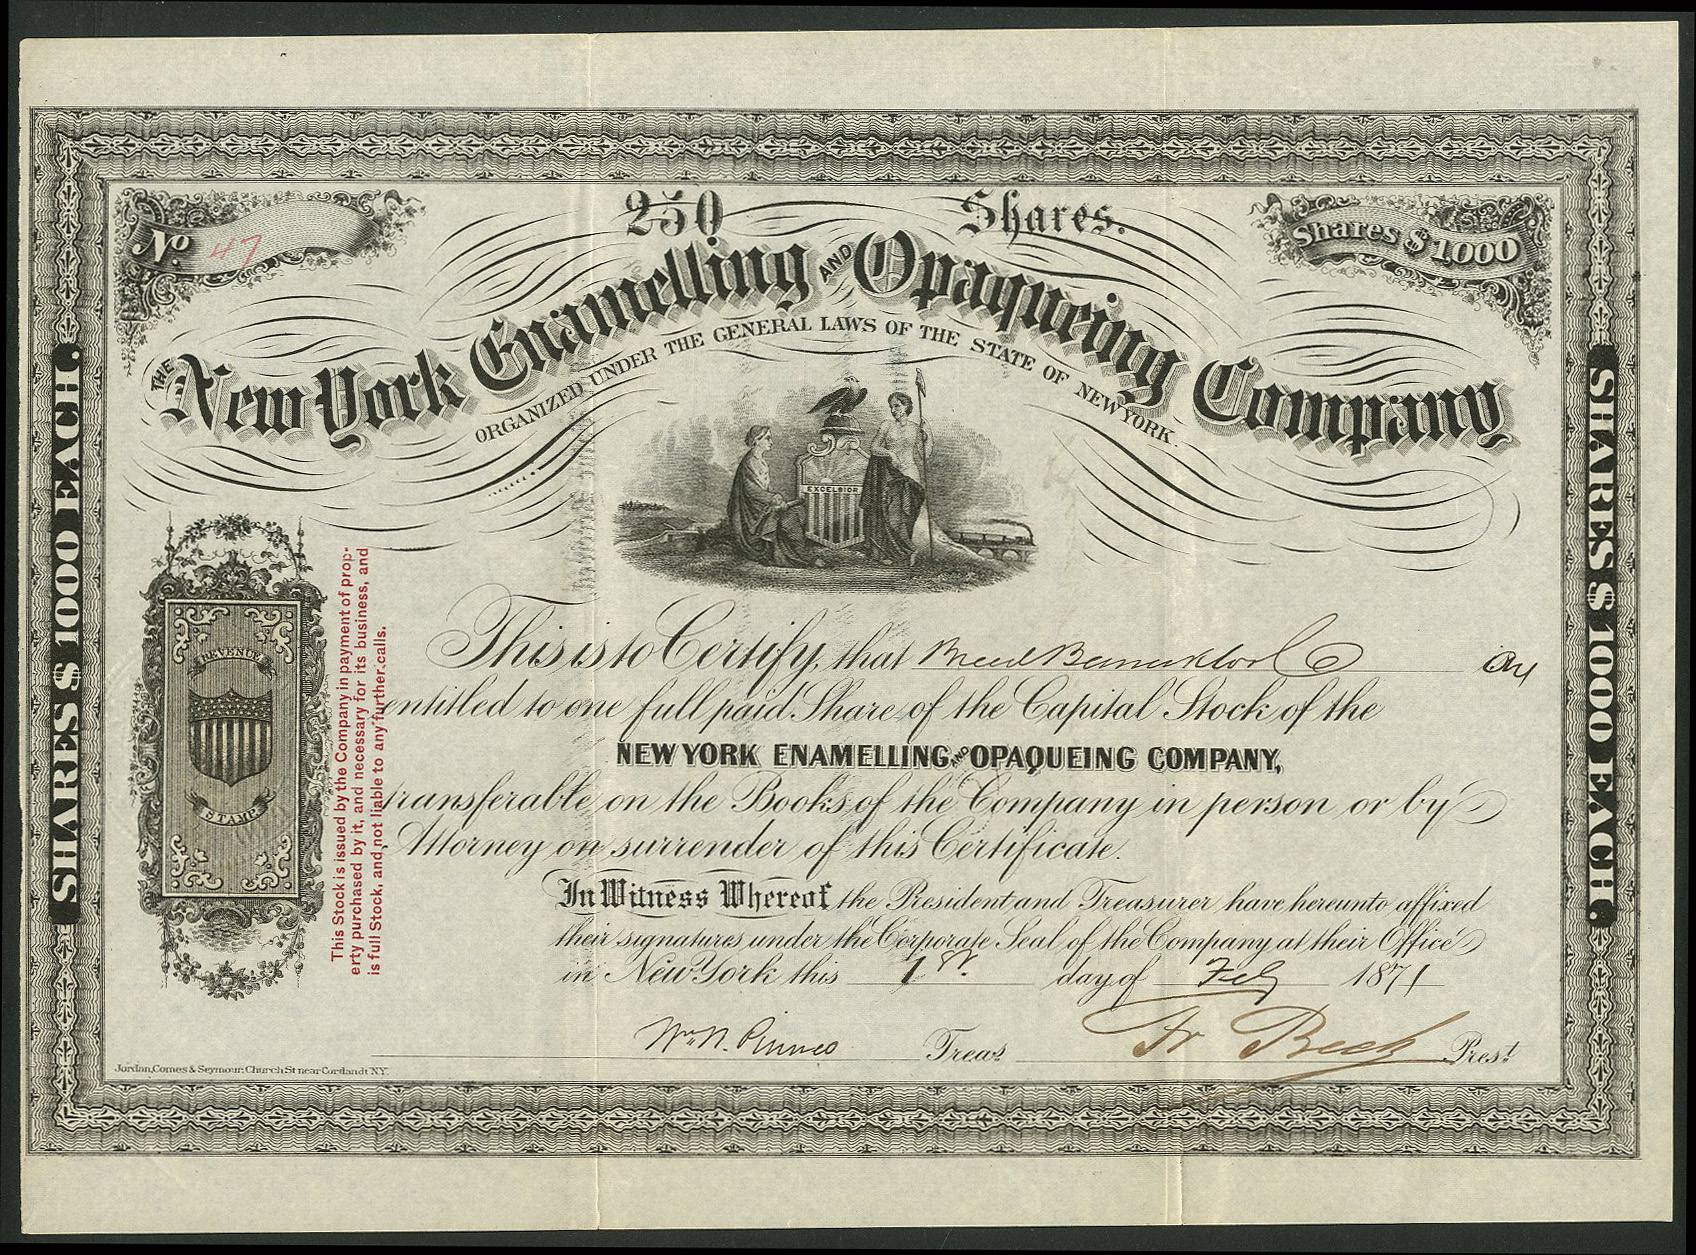 250 Shares.
No. 47
Shares $1000
THE New York Enamelling AND Opaqueing Company
ORGANIZED UNDER THE GENERAL LAWS OF THE STATE OF NEW YORK.
EXCELSIOR
SHARES $1000 EACH.
SHARES $1000 EACH.
REVENUE
STAMP
This Stock is issued by the Company in payment of prop-
erty purchased by it, and necessary for its business, and
is full Stock, and not liable to any further calls.
This is to Certify, that
entitled to one full paid Share of the Capital Stock of the
NEW YORK ENAMELLING AND OPAQUEING COMPANY,
transferable on the Books of the Company in person or by
Attorney on surrender of this Certificate.
In Witness Whereof the President and Treasurer have hereunto affixed
their signatures under the Corporate Seal of the Company at their Office
in New York this 1st day of Feby 1871
Wm N. Treas Fr Beck Prest
Jordan, Comes & Seymour, Church St near Cortlandt N.Y.